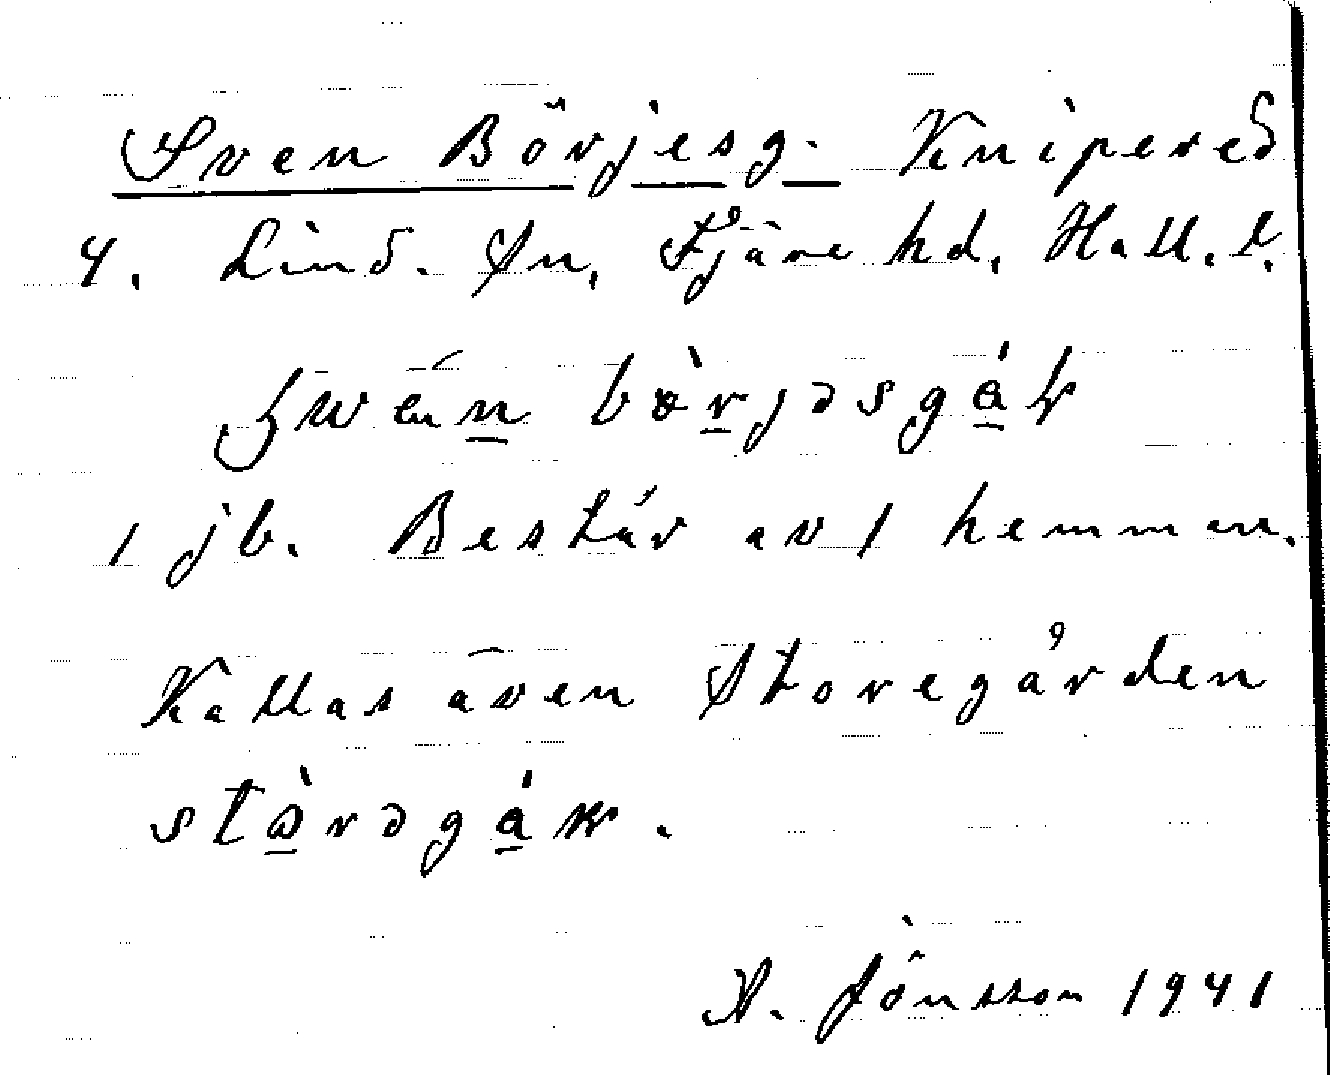 Sven Börjesg. Knipered
4. Lind. Sn. Fjäre hd. Hall. l.
1 jb. Består av 1 hemman.
Kallas även Storegården
A. Jönsson 1941